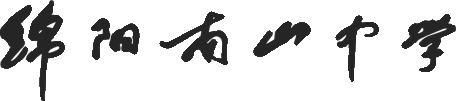 绵阳南山中学